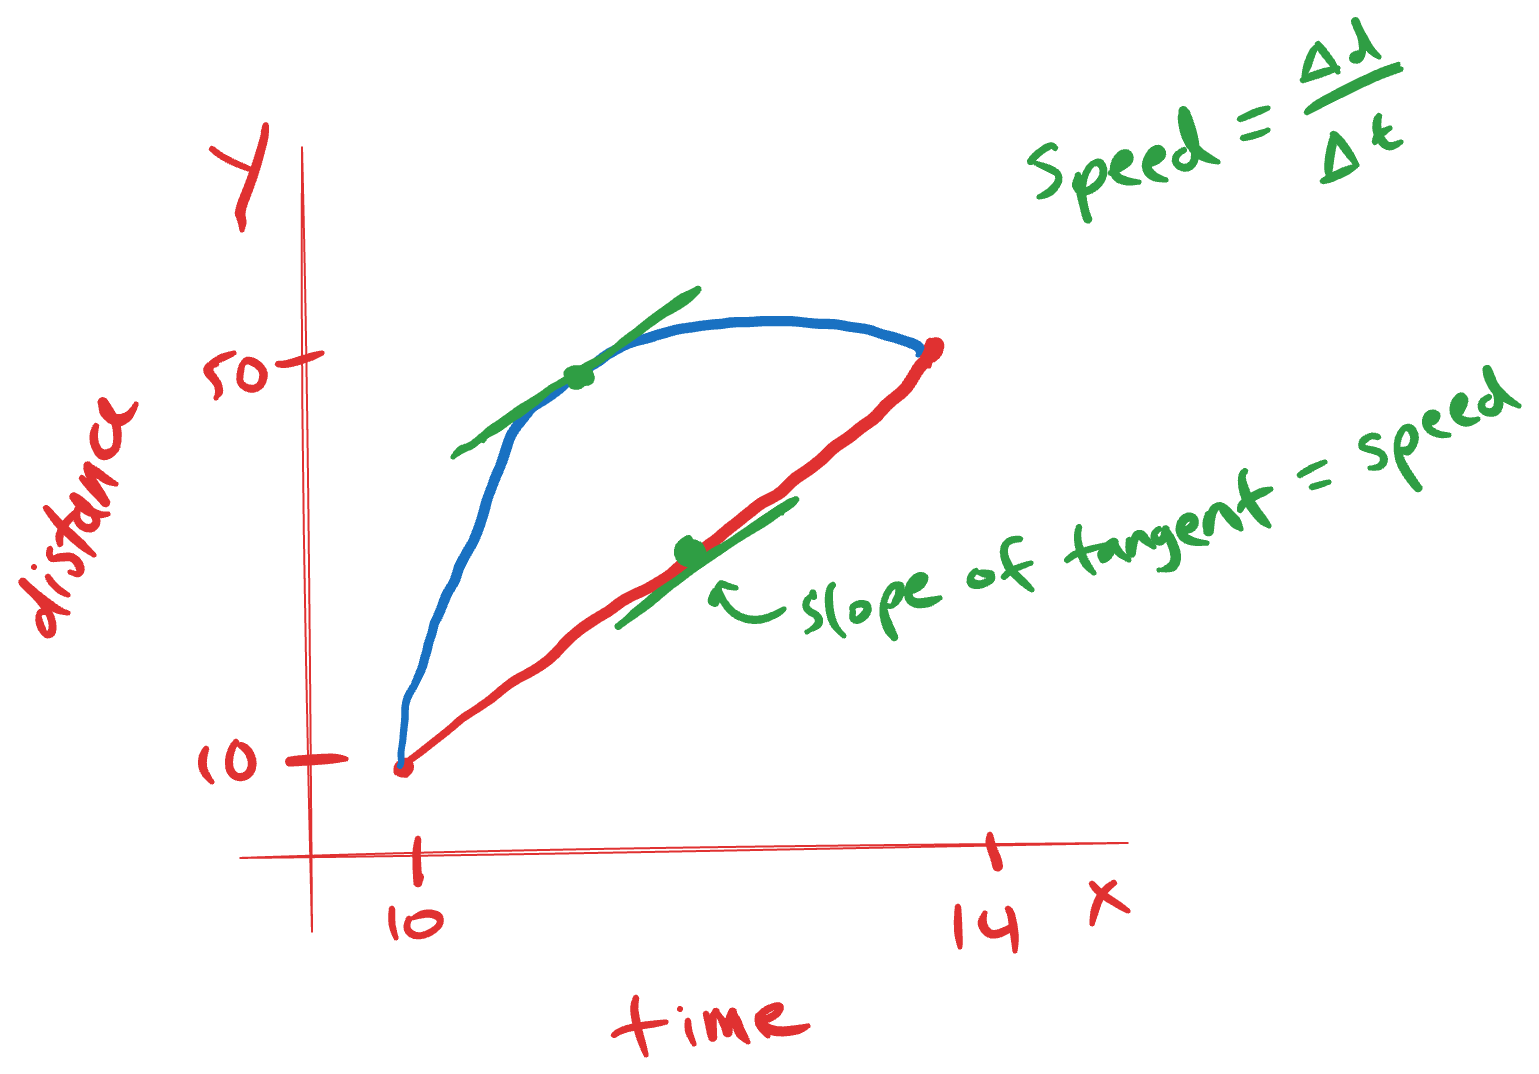 Speed = Δd/Δt
Y
50
distance
slope of tangent = speed
10
10
14
X
time